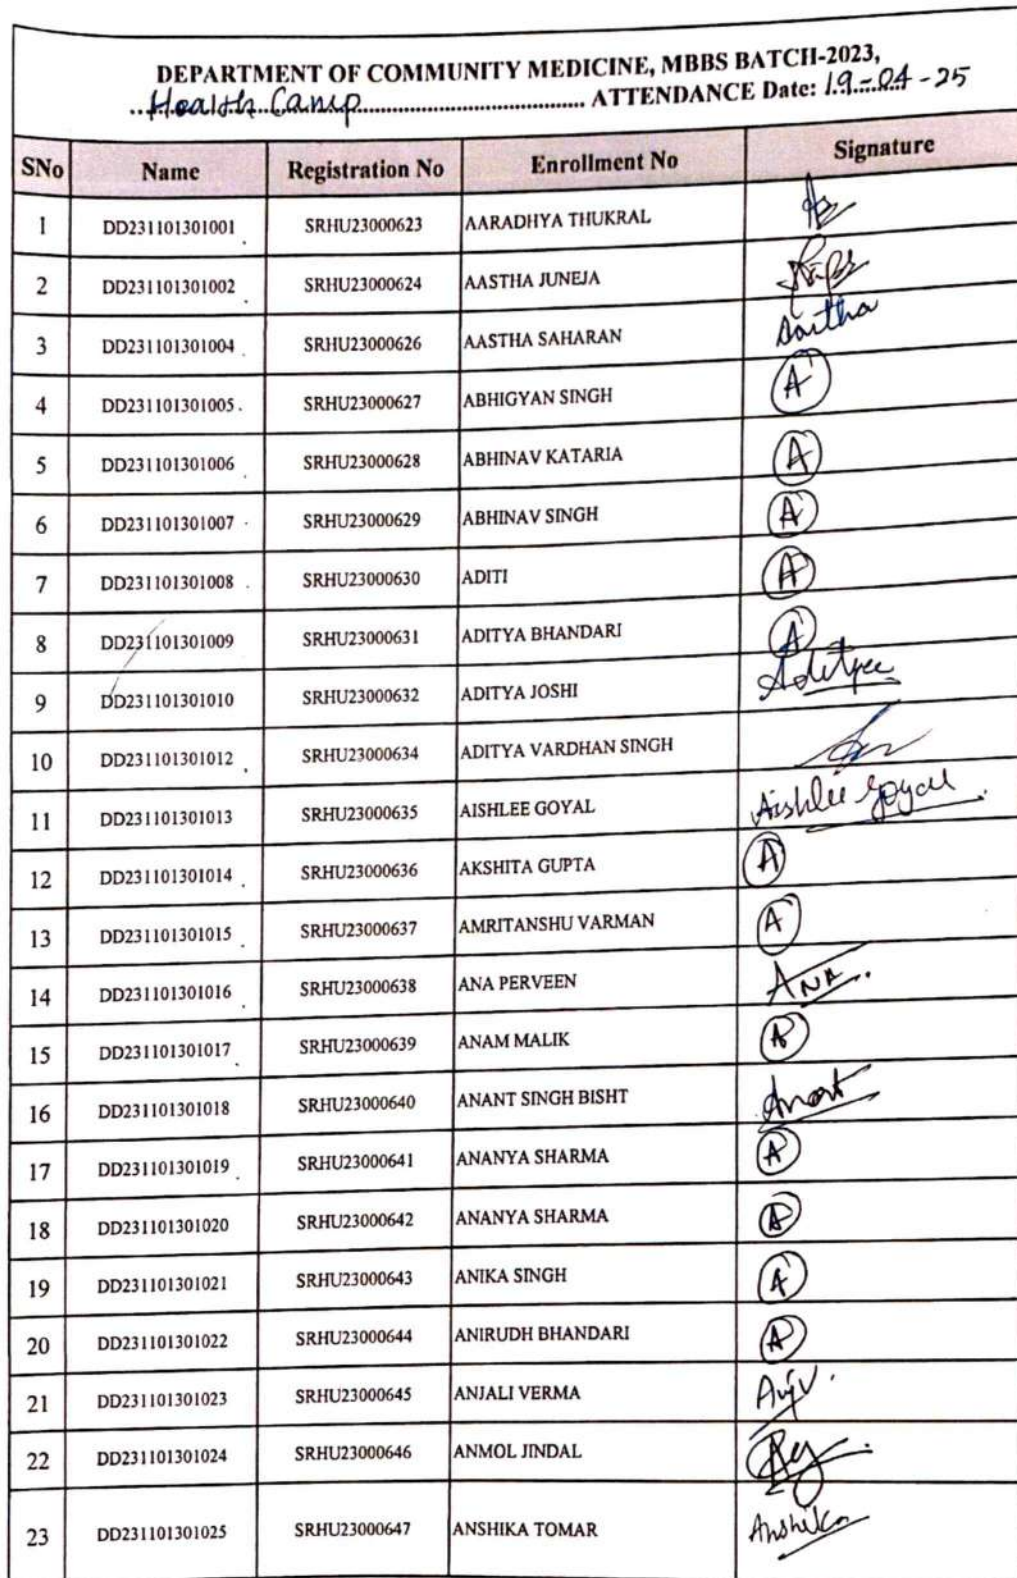 DEPARTMENT OF COMMUNITY MEDICINE, MBBS BATCH-2023,
Health Camp ATTENDANCE Date: 19-04-25
SNo Name Registration No Enrollment No Signature
1 DD231101301001 SRHU23000623 AARADHYA THUKRAL
2 DD231101301002 SRHU23000624 AASTHA JUNEJA
3 DD231101301004 SRHU23000626 AASTHA SAHARAN Aastha
4 DD231101301005 SRHU23000627 ABHIGYAN SINGH A
5 DD231101301006 SRHU23000628 ABHINAV KATARIA A
6 DD231101301007 SRHU23000629 ABHINAV SINGH A
7 DD231101301008 SRHU23000630 ADITI A
8 DD231101301009 SRHU23000631 ADITYA BHANDARI A
9 DD231101301010 SRHU23000632 ADITYA JOSHI Aditya
10 DD231101301012 SRHU23000634 ADITYA VARDHAN SINGH
11 DD231101301013 SRHU23000635 AISHLEE GOYAL Aishlee Goyal
12 DD231101301014 SRHU23000636 AKSHITA GUPTA A
13 DD231101301015 SRHU23000637 AMRITANSHU VARMAN A
14 DD231101301016 SRHU23000638 ANA PERVEEN ANA.
15 DD231101301017 SRHU23000639 ANAM MALIK A
16 DD231101301018 SRHU23000640 ANANT SINGH BISHT Anant
17 DD231101301019 SRHU23000641 ANANYA SHARMA A
18 DD231101301020 SRHU23000642 ANANYA SHARMA A
19 DD231101301021 SRHU23000643 ANIKA SINGH A
20 DD231101301022 SRHU23000644 ANIRUDH BHANDARI A
21 DD231101301023 SRHU23000645 ANJALI VERMA
22 DD231101301024 SRHU23000646 ANMOL JINDAL
23 DD231101301025 SRHU23000647 ANSHIKA TOMAR Anshika